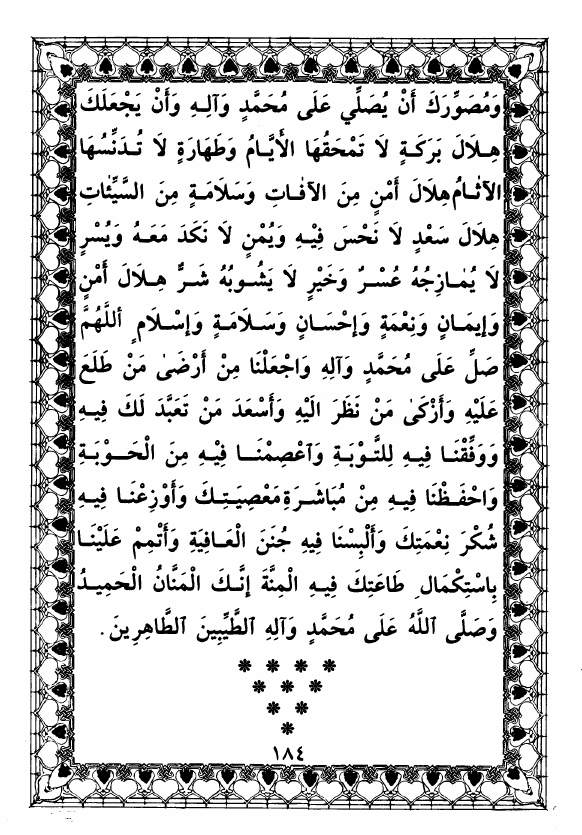 وَمُصَوِّرَكَ أَنْ يُصَلِّي عَلَى مُحَمَّدٍ وَآلِهِ وَأَنْ يَجْعَلَكَ
هِلَالَ بَرَكَةٍ لَا تَمْحَقُهَا الأَيَّامُ وَطَهَارَةٍ لَا تُدَنِّسُهَا
الآثَامُ هِلَالَ أَمْنٍ مِنَ الآفَاتِ وَسَلَامَةٍ مِنَ السَّيِّئَاتِ
هِلَالَ سَعْدٍ لَا نَحْسَ فِيْهِ وَيُمْنٍ لَا نَكَدَ مَعَهُ وَيُسْرٍ
لَا يُمَازِجُهُ عُسْرٌ وَخَيْرٍ لَا يَشُوبُهُ شَرٌّ هِلَالَ أَمْنٍ
وَإِيمَانٍ وَنِعْمَةٍ وَإِحْسَانٍ وَسَلَامَةٍ وَإِسْلَامٍ أَللَّهُمَّ
صَلِّ عَلَى مُحَمَّدٍ وَآلِهِ وَاجْعَلْنَا مِنْ أَرْضَىٰ مَنْ طَلَعَ
عَلَيْهِ وَأَزْكَىٰ مَنْ نَظَرَ الَيْهِ وَأَسْعَدَ مَنْ تَعَبَّدَ لَكَ فِيهِ
وَوَفِّقْنَا فِيهِ لِلتَّوْبَةِ وَاعْصِمْنَا فِيْهِ مِنَ الْحَوْبَةِ
وَاحْفَظْنَا فِيهِ مِنْ مُبَاشَرَةِ مَعْصِيَتِكَ وَأَوْزِعْنَا فِيهِ
شُكْرَ نِعْمَتِكَ وَأَلْبِسْنَا فِيهِ جُنَنَ الْعَافِيَةِ وَأَتْمِمْ عَلَيْنَا
بِاسْتِكْمَالِ طَاعَتِكَ فِيهِ الْمِنَّةَ إِنَّكَ الْمَنَّانُ الْحَمِيدُ
وَصَلَّى اللَّهُ عَلَى مُحَمَّدٍ وَآلِهِ الطَّيِّبِينَ الطَّاهِرِينَ.
١٨٤